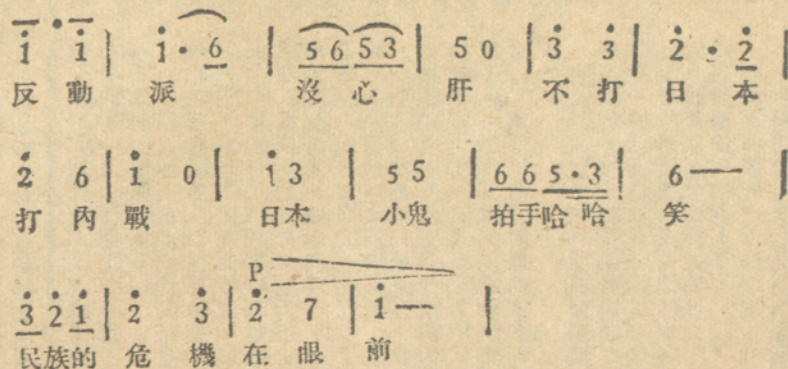 i i | i · 6 | 5 6 5 3 | 5 0 | 3 3 | 2 · 2 |
反 動 派 沒 心 肝 不 打 日 本
2 6 | i 0 | i 3 | 5 5 | 6 6 5 · 3 | 6 — |
打 內 戰 日本 小鬼 拍手哈 哈 笑
P
3 2 1 | 2 3 | 2 7 | i — |
民族的 危 機 在 眼 前